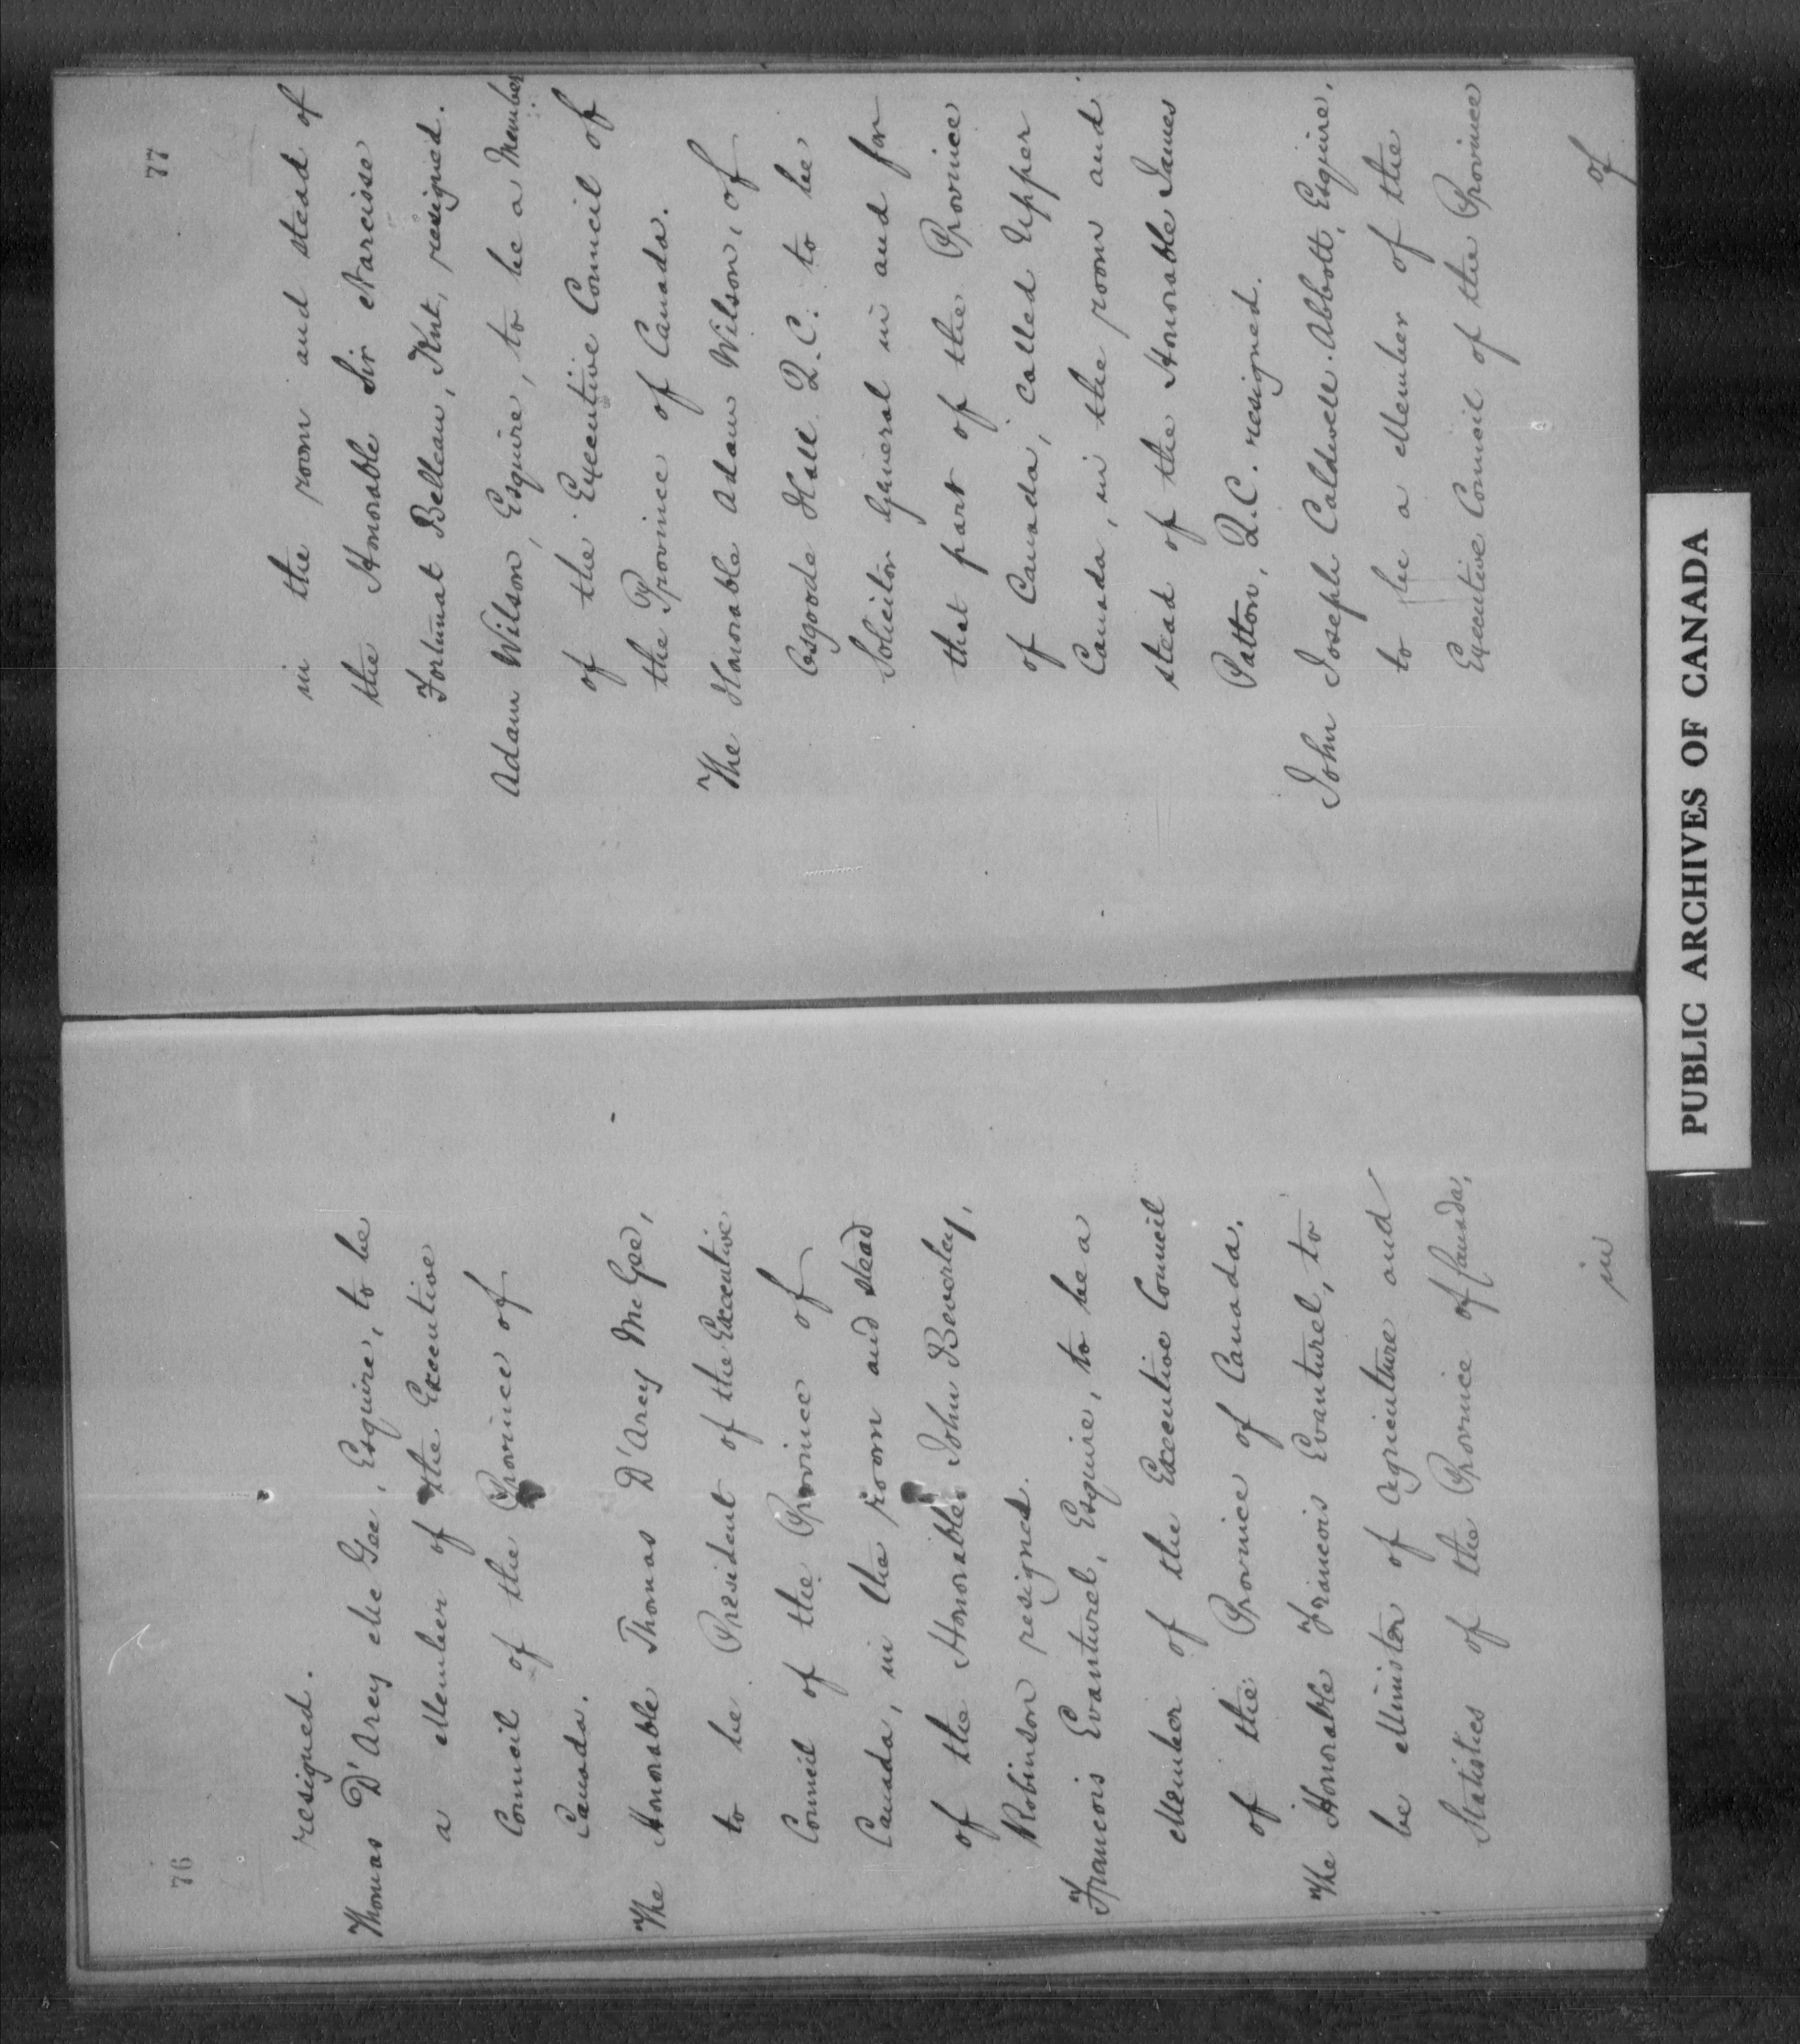 76
resigned.
Thomas D'Arcy Mc Gee, Esquire, to be
a Member of the Executive
Council of the Province of
Canada.
The Honorable Thomas D'Arcy McGee,
to be President of the Executive
Council of the Province of
Canada, in the room and stead
of the Honorable John Beverley,
Robinson resigned.
Francois Evanturel, Esquire, to be a
Member of the Executive Council
of the Province of Canada.
The Honorable Francois Evanturel, to
be Minister of Agriculture and
Statistics of the Province of Canada,
in
77
in the room and stead of
the Honorable Sir Narcisse
Fortunat Belleau, Knt, resigned.
Adam Wilson, Esquire, to be a Member
of the Executive Council of
the Province of Canada.
The Honorable Adam Wilson, of
Osgoode Hall Q.C. to be
Solicitor General in and for
that part of the Province
of Canada, called Upper
Canada, in the room and
stead of the Honorable James
Patton, Q.C. resigned.
John Joseph Caldwell Abbott, Esquire,
to be a Member of the
Executive Council of the Province
of
PUBLIC ARCHIVES OF CANADA